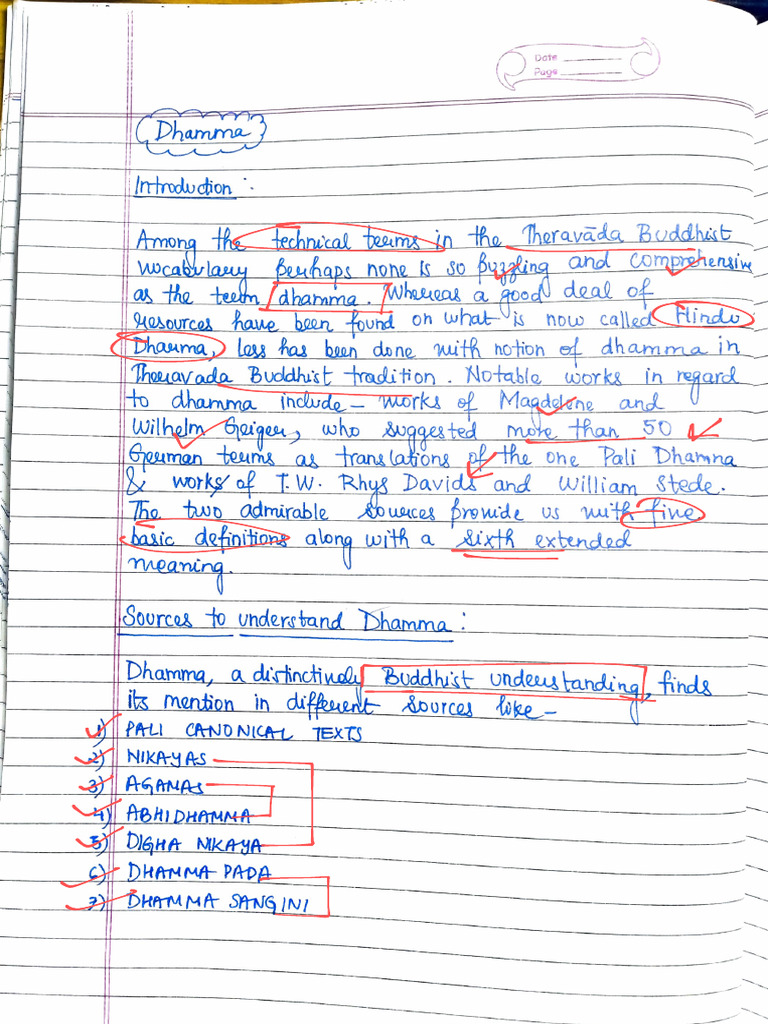 Date
Page
Dhamma
Introduction :
Among the technical terms in the Theravāda Buddhist
vocabulary perhaps none is so puzzling and comprehensive
as the term dhamma. Whereas a good deal of
resources have been found on what is now called Hindu
Dharma, less has been done with notion of dhamma in
Theravada Buddhist tradition. Notable works in regard
to dhamma include – works of Magdelene and
Wilhelm Geiger, who suggested more than 50
German terms as translations of the one Pali Dhamna
& works of T.W. Rhys Davids and William Stede.
The two admirable sources provide us with five
basic definitions along with a sixth extended
meaning.
Sources to understand Dhamma :
Dhamma, a distinctively Buddhist understanding, finds
its mention in different sources like –
1) PALI CANONICAL TEXTS
2) NIKAYAS
3) AGANAS
4) ABHIDHAMMA
5) DIGHA NIKAYA
6) DHAMMA PADA
7) DHAMMA SANGINI